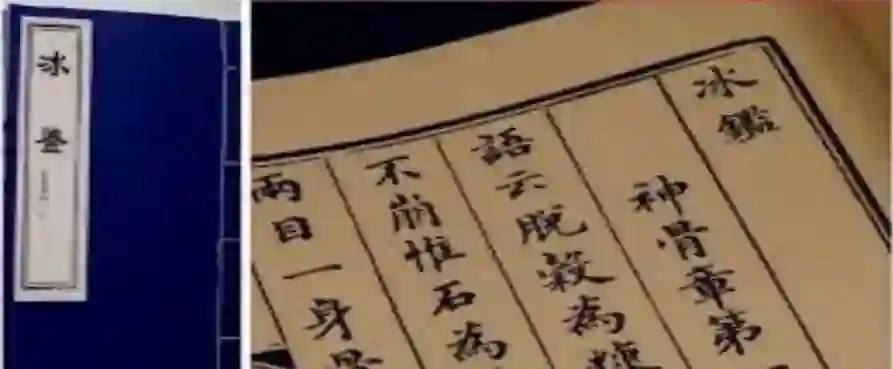 冰鑒
冰鑑
神骨章第
語云脫穀為糠
不崩惟石為
兩目一身是